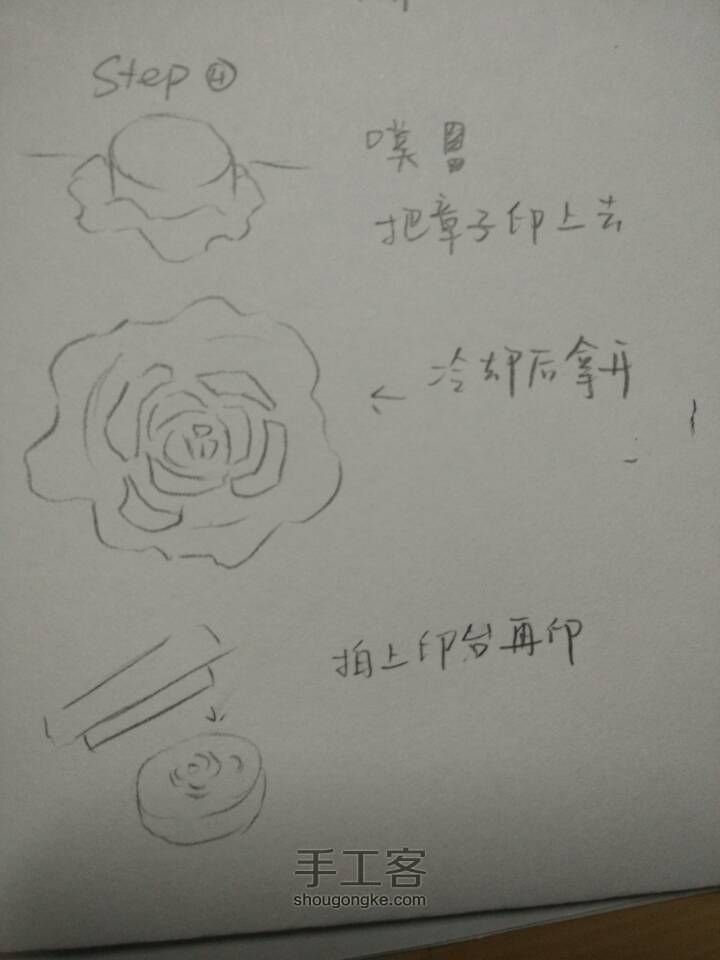 Step ④
噗
把章子印上去
← 冷却后拿开
拍上印台再印
手工客
shougongke.com